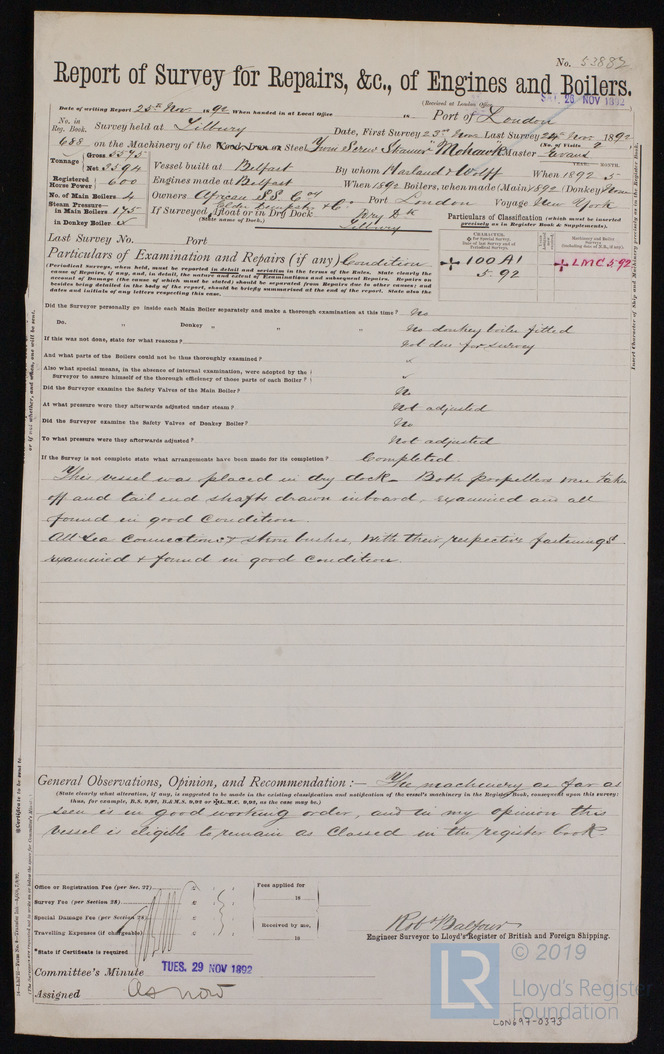 No. 53882
Report of Survey for Repairs, &c., of Engines and Boilers.
(Received at London Office
SAT. 26 NOV 1892
Date of writing Report 25th Nov 1892 When handed in at Local Office 18 Port of London
No. in Reg. Book. 688
Survey held at Tilbury Date, First Survey 23rd Nov Last Survey 24th Nov 1892
(No. of Visits 2
on the Machinery of the Wood, Iron or Steel Twin Screw Steamer "Mohawk" Master Evans
Tonnage Gross 5575 Net 3594
Vessel built at Belfast By whom Harland & Wolff When 1892 5
YEAR. MONTH.
Registered Horse Power 600
Engines made at Belfast When 1892 Boilers, when made (Main) 1892 (Donkey) None
No. of Main Boilers 4
Owners African SS Coy Elder Dempster & Co Port London Voyage New York
Steam Pressure in Main Boilers 175
in Donkey Boiler
If Surveyed Afloat or in Dry Dock Dry Dk Tilbury
(State name of Dock.)
Particulars of Classification (which must be inserted precisely as in Register Book & Supplements).
Last Survey No. Port
CHARACTER.
+ 100A1
5 92
+ LMC 5.92
Particulars of Examination and Repairs (if any) Condition
(Periodical Surveys, when held, must be reported in detail and seriatim in the terms of the Rules. State clearly the
cause of Repairs, if any, and, in detail, the nature and extent of Examinations and subsequent Repairs. Repairs on
account of Damage (the cause of which must be stated) should be separated from Repairs due to other causes; and
besides being detailed in the body of the report, should be briefly summarised at the end of the report. State also the
dates and initials of any letters respecting this case.
Did the Surveyor personally go inside each Main Boiler separately and make a thorough examination at this time? No
Do. " Donkey " " " No donkey boiler fitted
If this was not done, state for what reasons? Not due for survey
And what parts of the Boilers could not be thus thoroughly examined?
Also what special means, in the absence of internal examination, were adopted by the
Surveyor to assure himself of the thorough efficiency of those parts of each Boiler?
Did the Surveyor examine the Safety Valves of the Main Boiler? No
At what pressure were they afterwards adjusted under steam? Not adjusted
Did the Surveyor examine the Safety Valves of Donkey Boiler? No
To what pressure were they afterwards adjusted? Not adjusted
If the Survey is not complete state what arrangements have been made for its completion? Completed.
This vessel was placed in dry dock. Both propellers were taken
off and tail end shafts drawn inboard, examined and all
found in good condition.
All sea connections & stern bushes, with their respective fastenings
examined & found in good condition.
General Observations, Opinion, and Recommendation:— The machinery as far as
(State clearly what alteration, if any, is suggested to be made in the existing classification and notification of the vessel's machinery in the Register Book, consequent upon this survey:
thus, for example, B.S. 9,92, B.&M.S. 9,92 or +L.M.C. 9,92, as the case may be.)
seen is in good working order, and in my opinion this
vessel is eligible to remain as Classed in the register book.
Office or Registration Fee (per Sec. 27) £ : :
Survey Fee (per Section 28) £ : :
Special Damage Fee (per Section 28) £ : :
Travelling Expenses (if chargeable) £ : :
*State if Certificate is required
Fees applied for
18
Received by me,
18
Robt Balfour
Engineer Surveyor to Lloyd's Register of British and Foreign Shipping.
Committee's Minute TUES. 29 NOV 1892
Assigned As now
LR
© 2019
Lloyd's Register
Foundation
LON697-0373